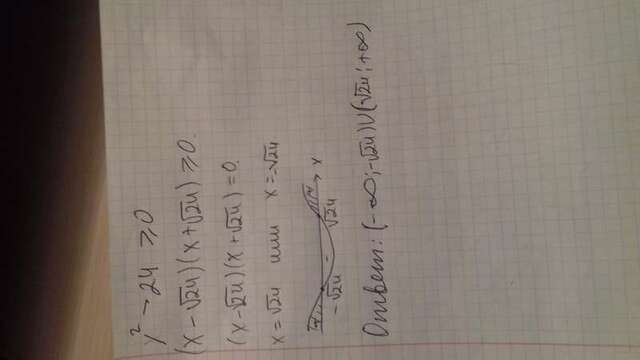 x² - 24 ⩾ 0
(x - √24)(x + √24) ⩾ 0.
(x - √24)(x + √24) = 0.
x = √24 или x = -√24
+ - + x
-√24 √24
Ответ: (-∞; -√24)∪(√24; +∞)